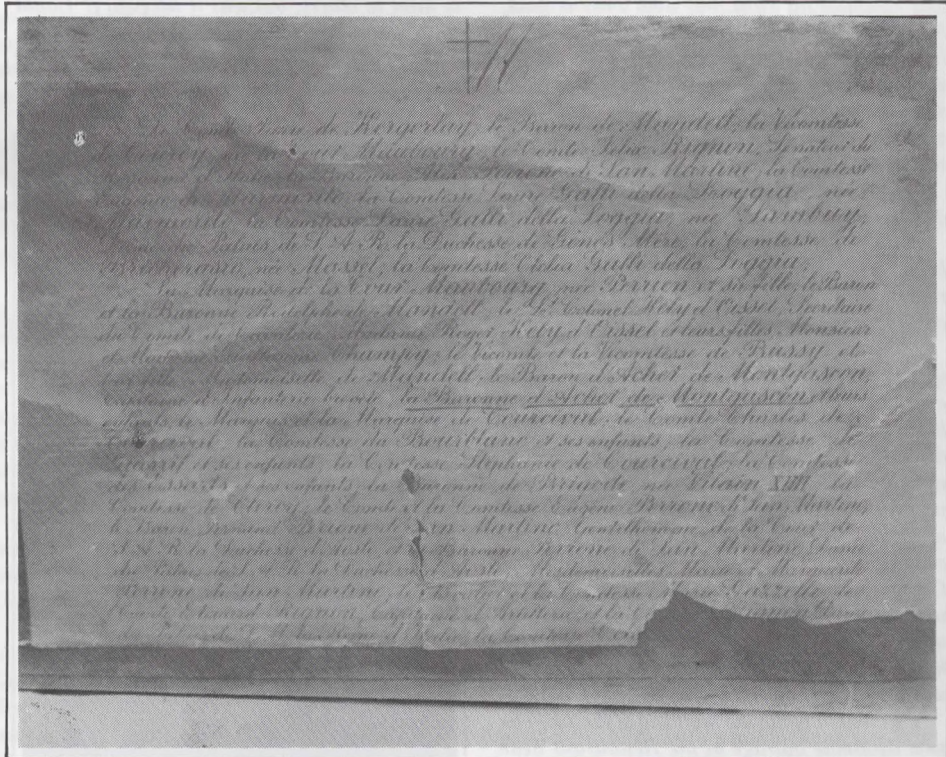 le Comte de Kergorlay, le Baron de Mandell, la Vicomtesse
de Courcy, née la Tour Maubourg, le Comte Felix Rignon, Sénateur du
Royaume d'Italie, la Baronne Perrone de San Martino, la Comtesse
Eugénie de Marmorito, la Comtesse Laure Galli della Loggia née
Marmorito, la Comtesse Laure Galli della Loggia, née Sambuy,
Dame du Palais de S. A. R. la Duchesse de Gênes Mère, la Comtesse de
née Massel, la Comtesse Clelia Galli della Loggia;
La Marquise de la Tour Maubourg née Perron et sa fille, le Baron
et la Baronne Rodolphe de Mandell, le Lt Colonel Kély d'Oissel, Secrétaire
du Comité de Cavalerie, Madame Roger Kély d'Oissel et leurs filles, Monsieur
et Madame Guillaume Champy, le Vicomte et la Vicomtesse de Bussy et
leur fille, Mademoiselle de Mandell, le Baron d'Achet de Montgascon,
Capitaine d'Infanterie breveté, la Baronne d'Achet de Montgascon et leurs
enfants, le Marquis et la Marquise de Courcival, le Comte Charles de
Courcival, la Comtesse du Bourblanc et ses enfants, la Comtesse de
et ses enfants, la Comtesse Stéphanie de Courcival, la Comtesse
des Essarts et ses enfants, la Baronne de Brigode, née Vilain XIIII, la
Comtesse de Clercy, le Comte et la Comtesse Eugène Perrone de San Martino,
le Baron Fernand Perrone de San Martino, Gentilhomme de la Cour de
S. A. R. la Duchesse d'Aoste, et la Baronne Perrone de San Martino, Dame
du Palais de S. A. R. la Duchesse d'Aoste, Mesdemoiselles Marie et Marguerite
Perrone de San Martino, le et la Comtesse Gazzelle, le
Comte Edouard Rignon, Capitaine d'Artillerie, et la Rignon, Dame
du Palais de S. M. la Reine d'Italie, la Comtesse